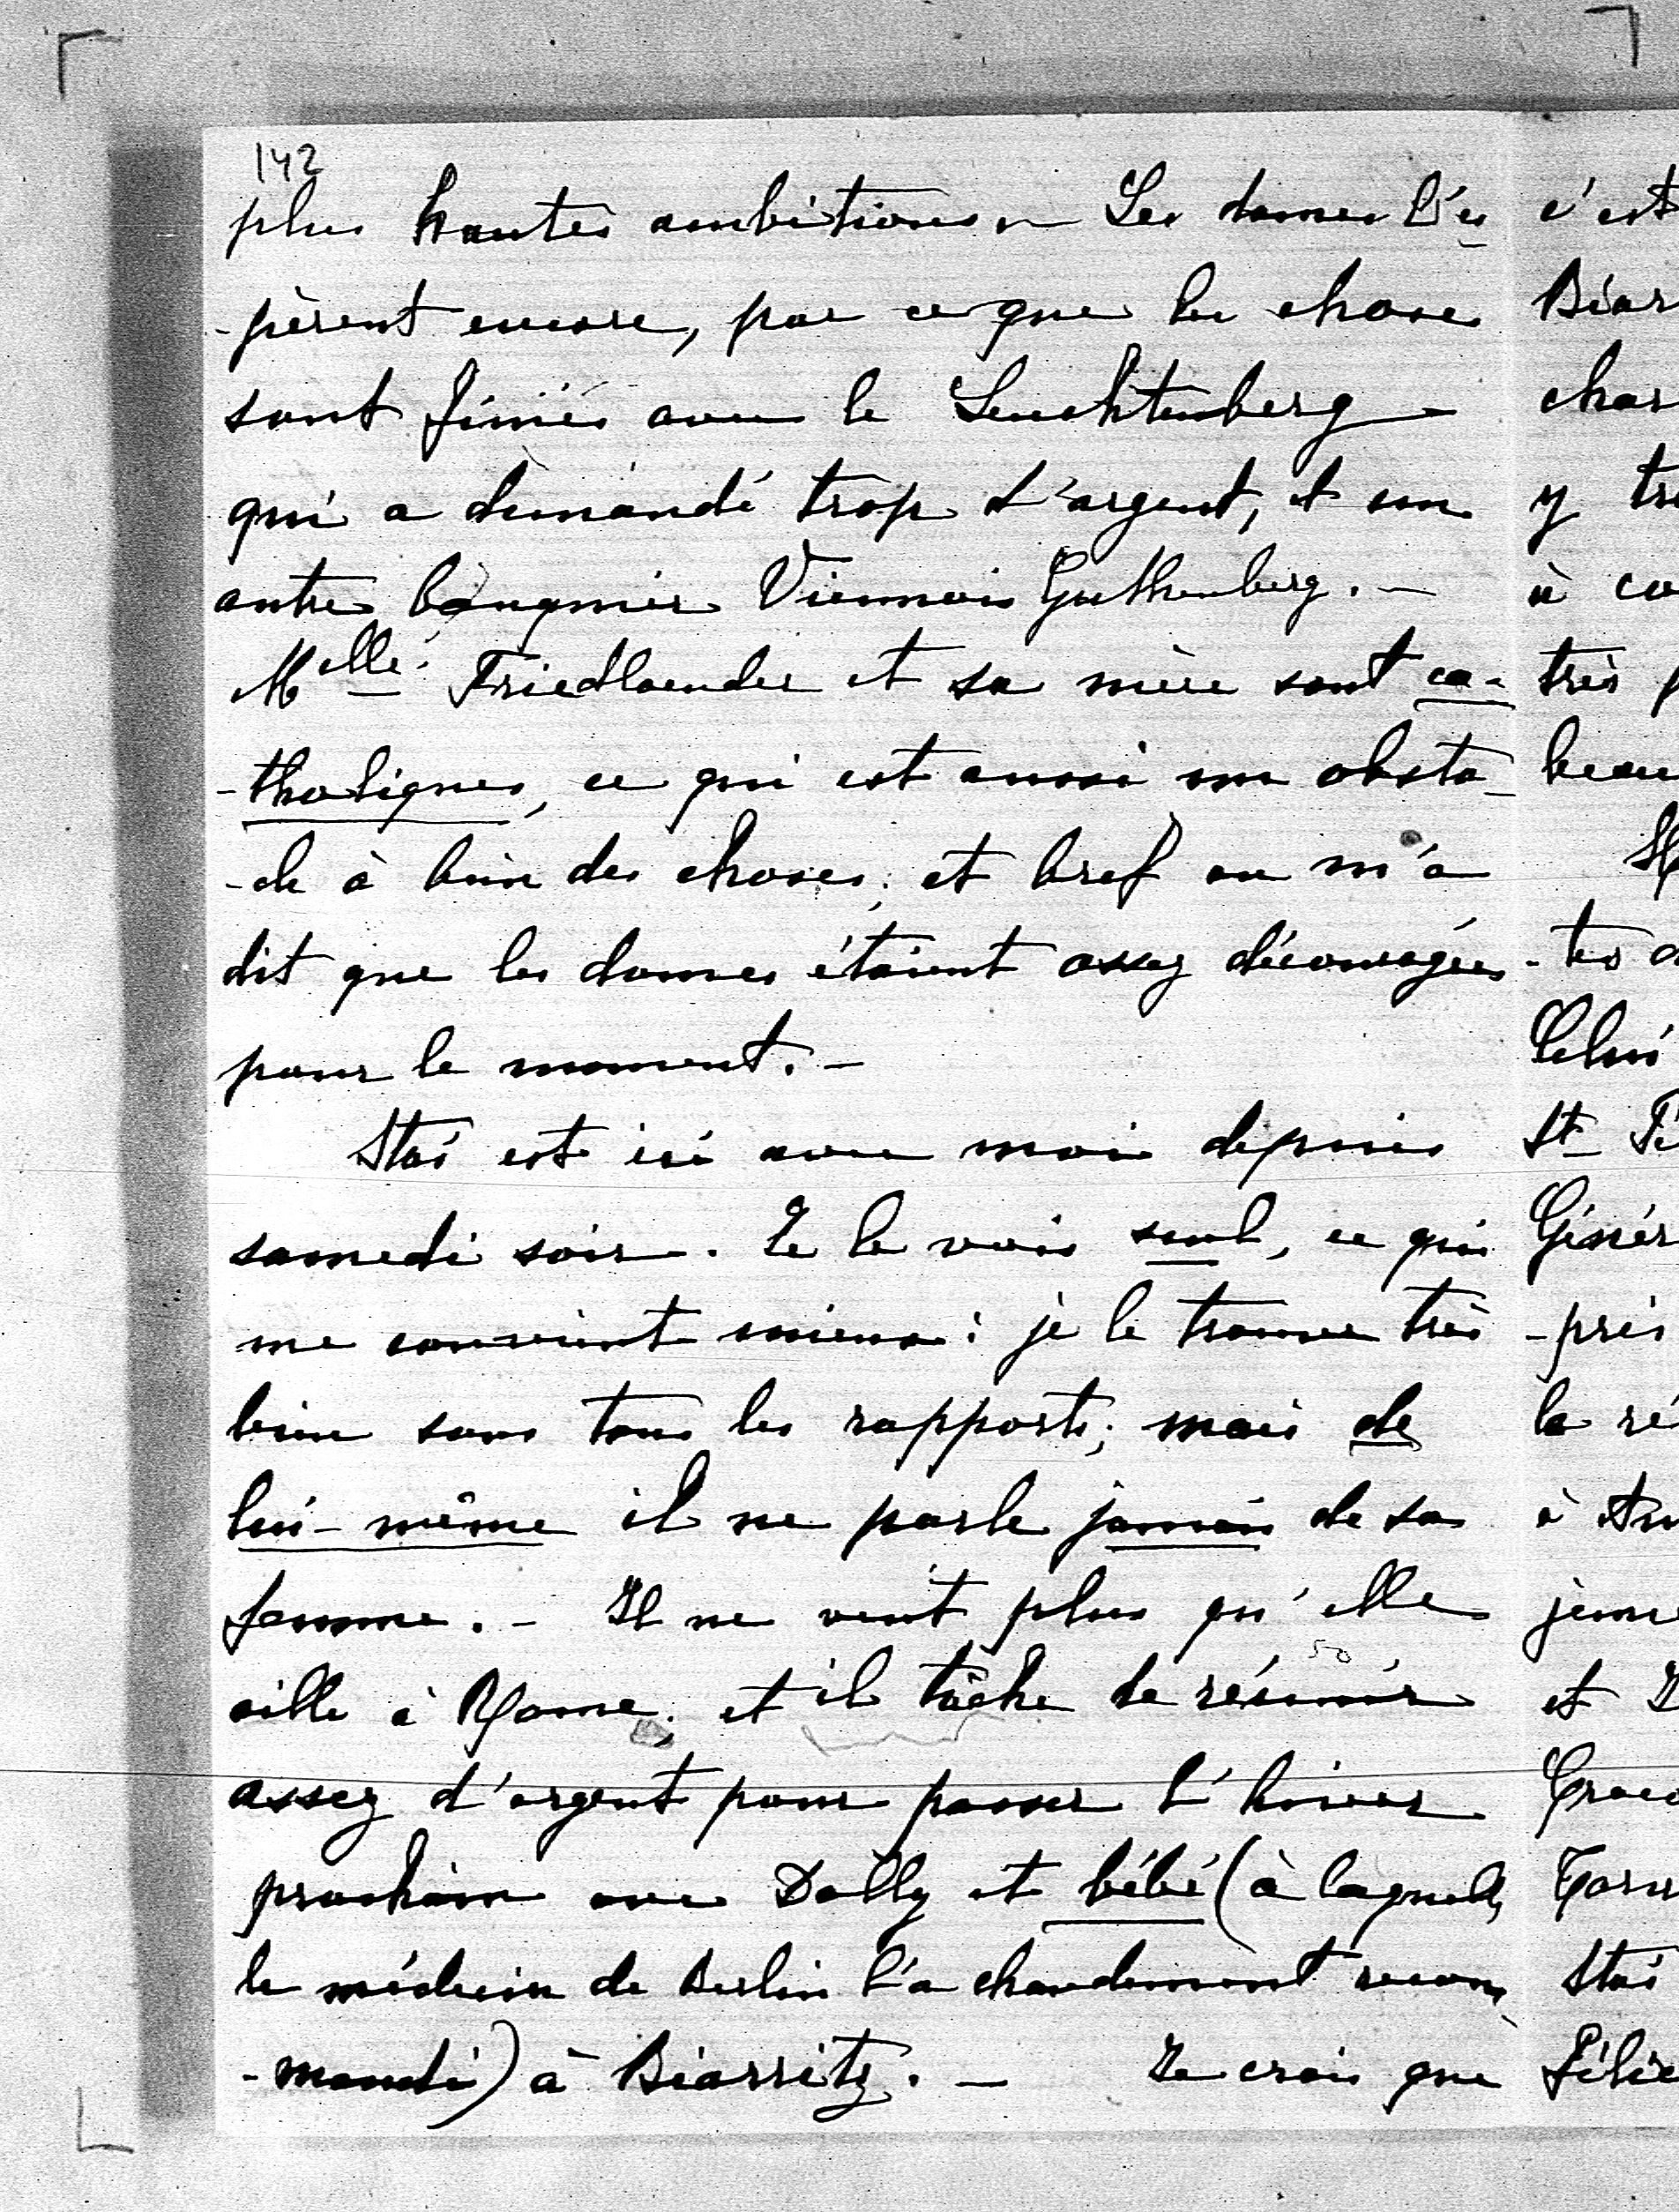 142
plus hautes ambitions. — Les dames l'es
-pèrent encore, par ce que les choses
sont finies avec le Leuchtenberg —
qui a demandé trop d'argent, et un
autre banquier Viennois Guthenberg. —
Melle Friedlaender et sa mère sont ca-
-tholiques, ce qui est aussi un obsta-
-cle à bien des choses; et bref on m'a
dit que les dames étaient assez découragées
pour le moment. —
Stas est ici avec moi depuis
samedi soir. Je le vois seul, ce qui
me convient mieux: je le trouve très
bien sous tous les rapports; mais de
lui-même il ne parle jamais de sa
femme. — Il ne veut plus qu'elle
aille à Rome; et il tâche de réunir
assez d'argent pour passer l'hiver
prochain avec Dolly et bébé (à laquelle
le médecin de Berlin l'a chaudement recom
-mandé) à Biarritz. — Je crois que
c'est
Biar
char
y tr
à co
très p
beau
-tes a
Celui
St Pé
Génér
-près
la ré
à
jeune
et D
Crac
Tarn
Stas
Félic